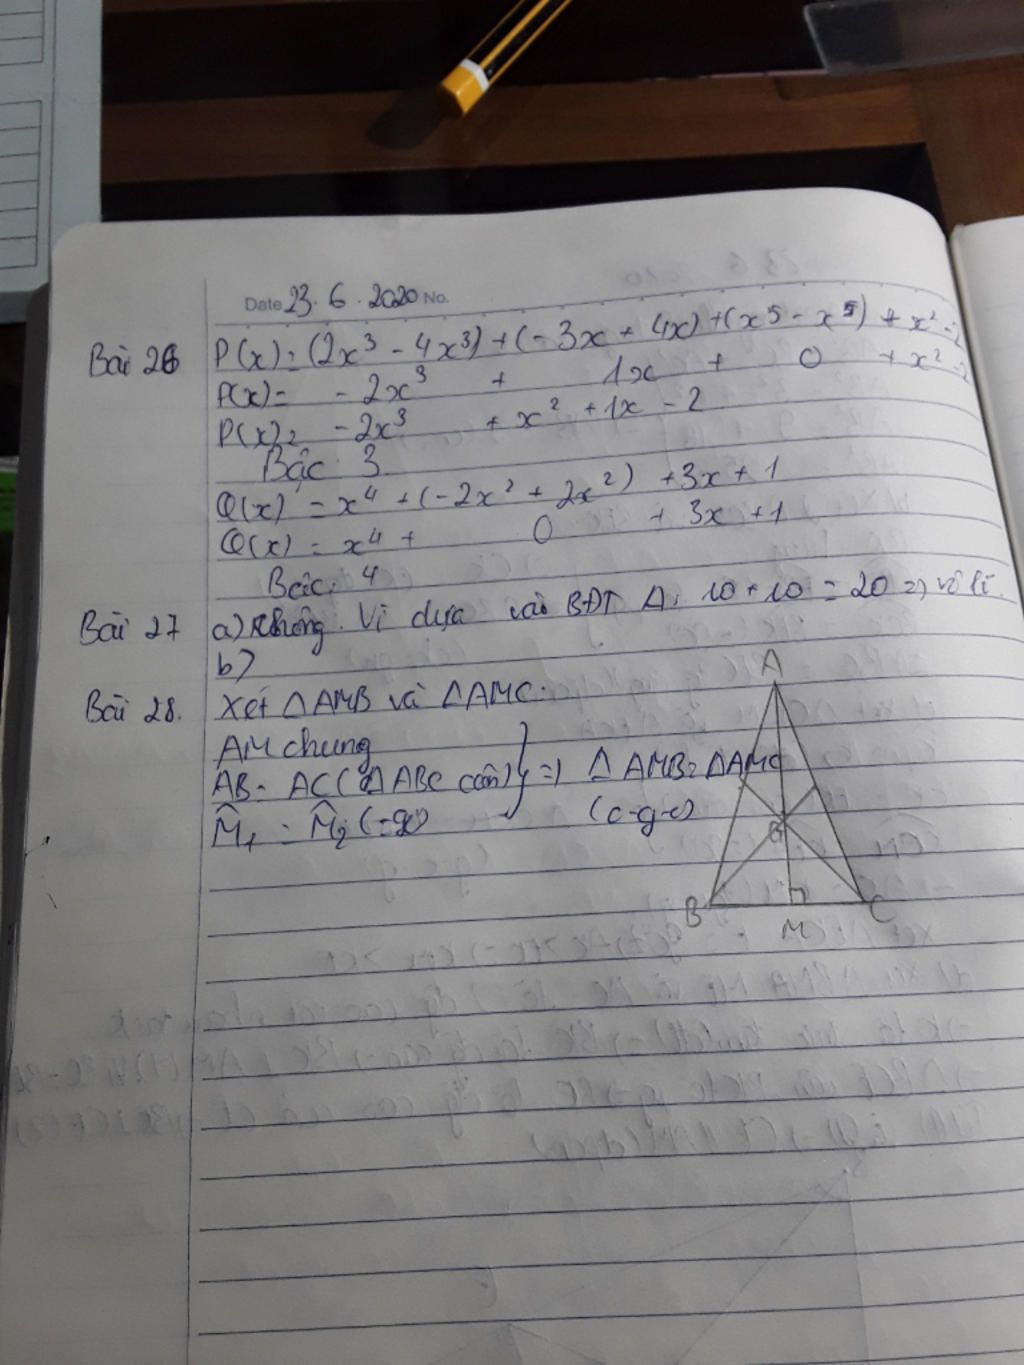 Date 23. 6. 2020 No.
Bài 26 P(x) = (2x³ - 4x³) + (-3x + 4x) + (x⁵ - x⁵) + x² - 2
P(x) = - 2x³ + 1x + 0 + x² - 2
P(x) = - 2x³ + x² + 1x - 2
Bậc 3
Q(x) = x⁴ + (-2x² + 2x²) + 3x + 1
Q(x) = x⁴ + 0 + 3x + 1
Bậc: 4
Bài 27 a) Không. Vì dựa vào BĐT Δ: 10 + 10 = 20 => vô lí.
b)
Bài 28. Xét ΔAMB và ΔAMC.
AM chung
AB = AC (ΔABC cân) } => ΔAMB = ΔAMC
M̂₁ = M̂₂ (c-g-c)
A
G
B M C